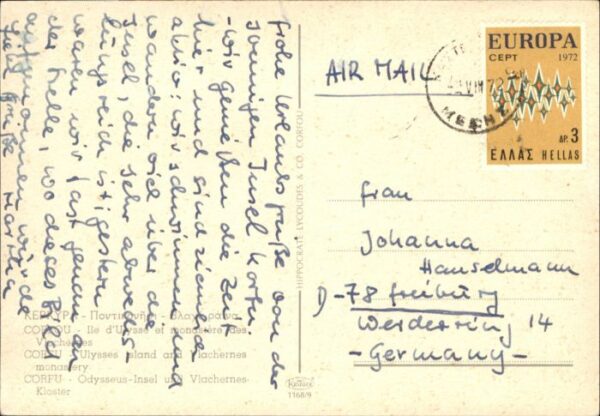 frohe Urlaubsgrüße von der
sonnigen Insel Korfu
- wir genießen die Zeit
hier und sind ziemlich
aktiv: wir schwimmen und
wandern viel über die
Insel, die sehr abwechs-
lungsreich ist; gestern
waren wir fast genau an
der Stelle, wo dieses Bild
aufgenommen wurde
Liebe Grüße Martina
HIPPOCRATE LYCOUDES & CO. CORFOU
AIR MAIL
EUROPA
CEPT 1972
ΔΡ. 3
ΕΛΛΑΣ HELLAS
VIII 72
Frau
Johanna
Hanselmann
D-78 Freiburg
Werderring 14
- Germany -
ΚΕΡΚΥΡΑ - Ποντικονήσι - Βλαχέραινα
CORFOU - Ile d'Ulysse et monastère des
Vlachernes
CORFU - Ulysses island and Vlachernes
monastery
CORFU - Odysseus-Insel und Vlachernes-
Kloster
1168/9